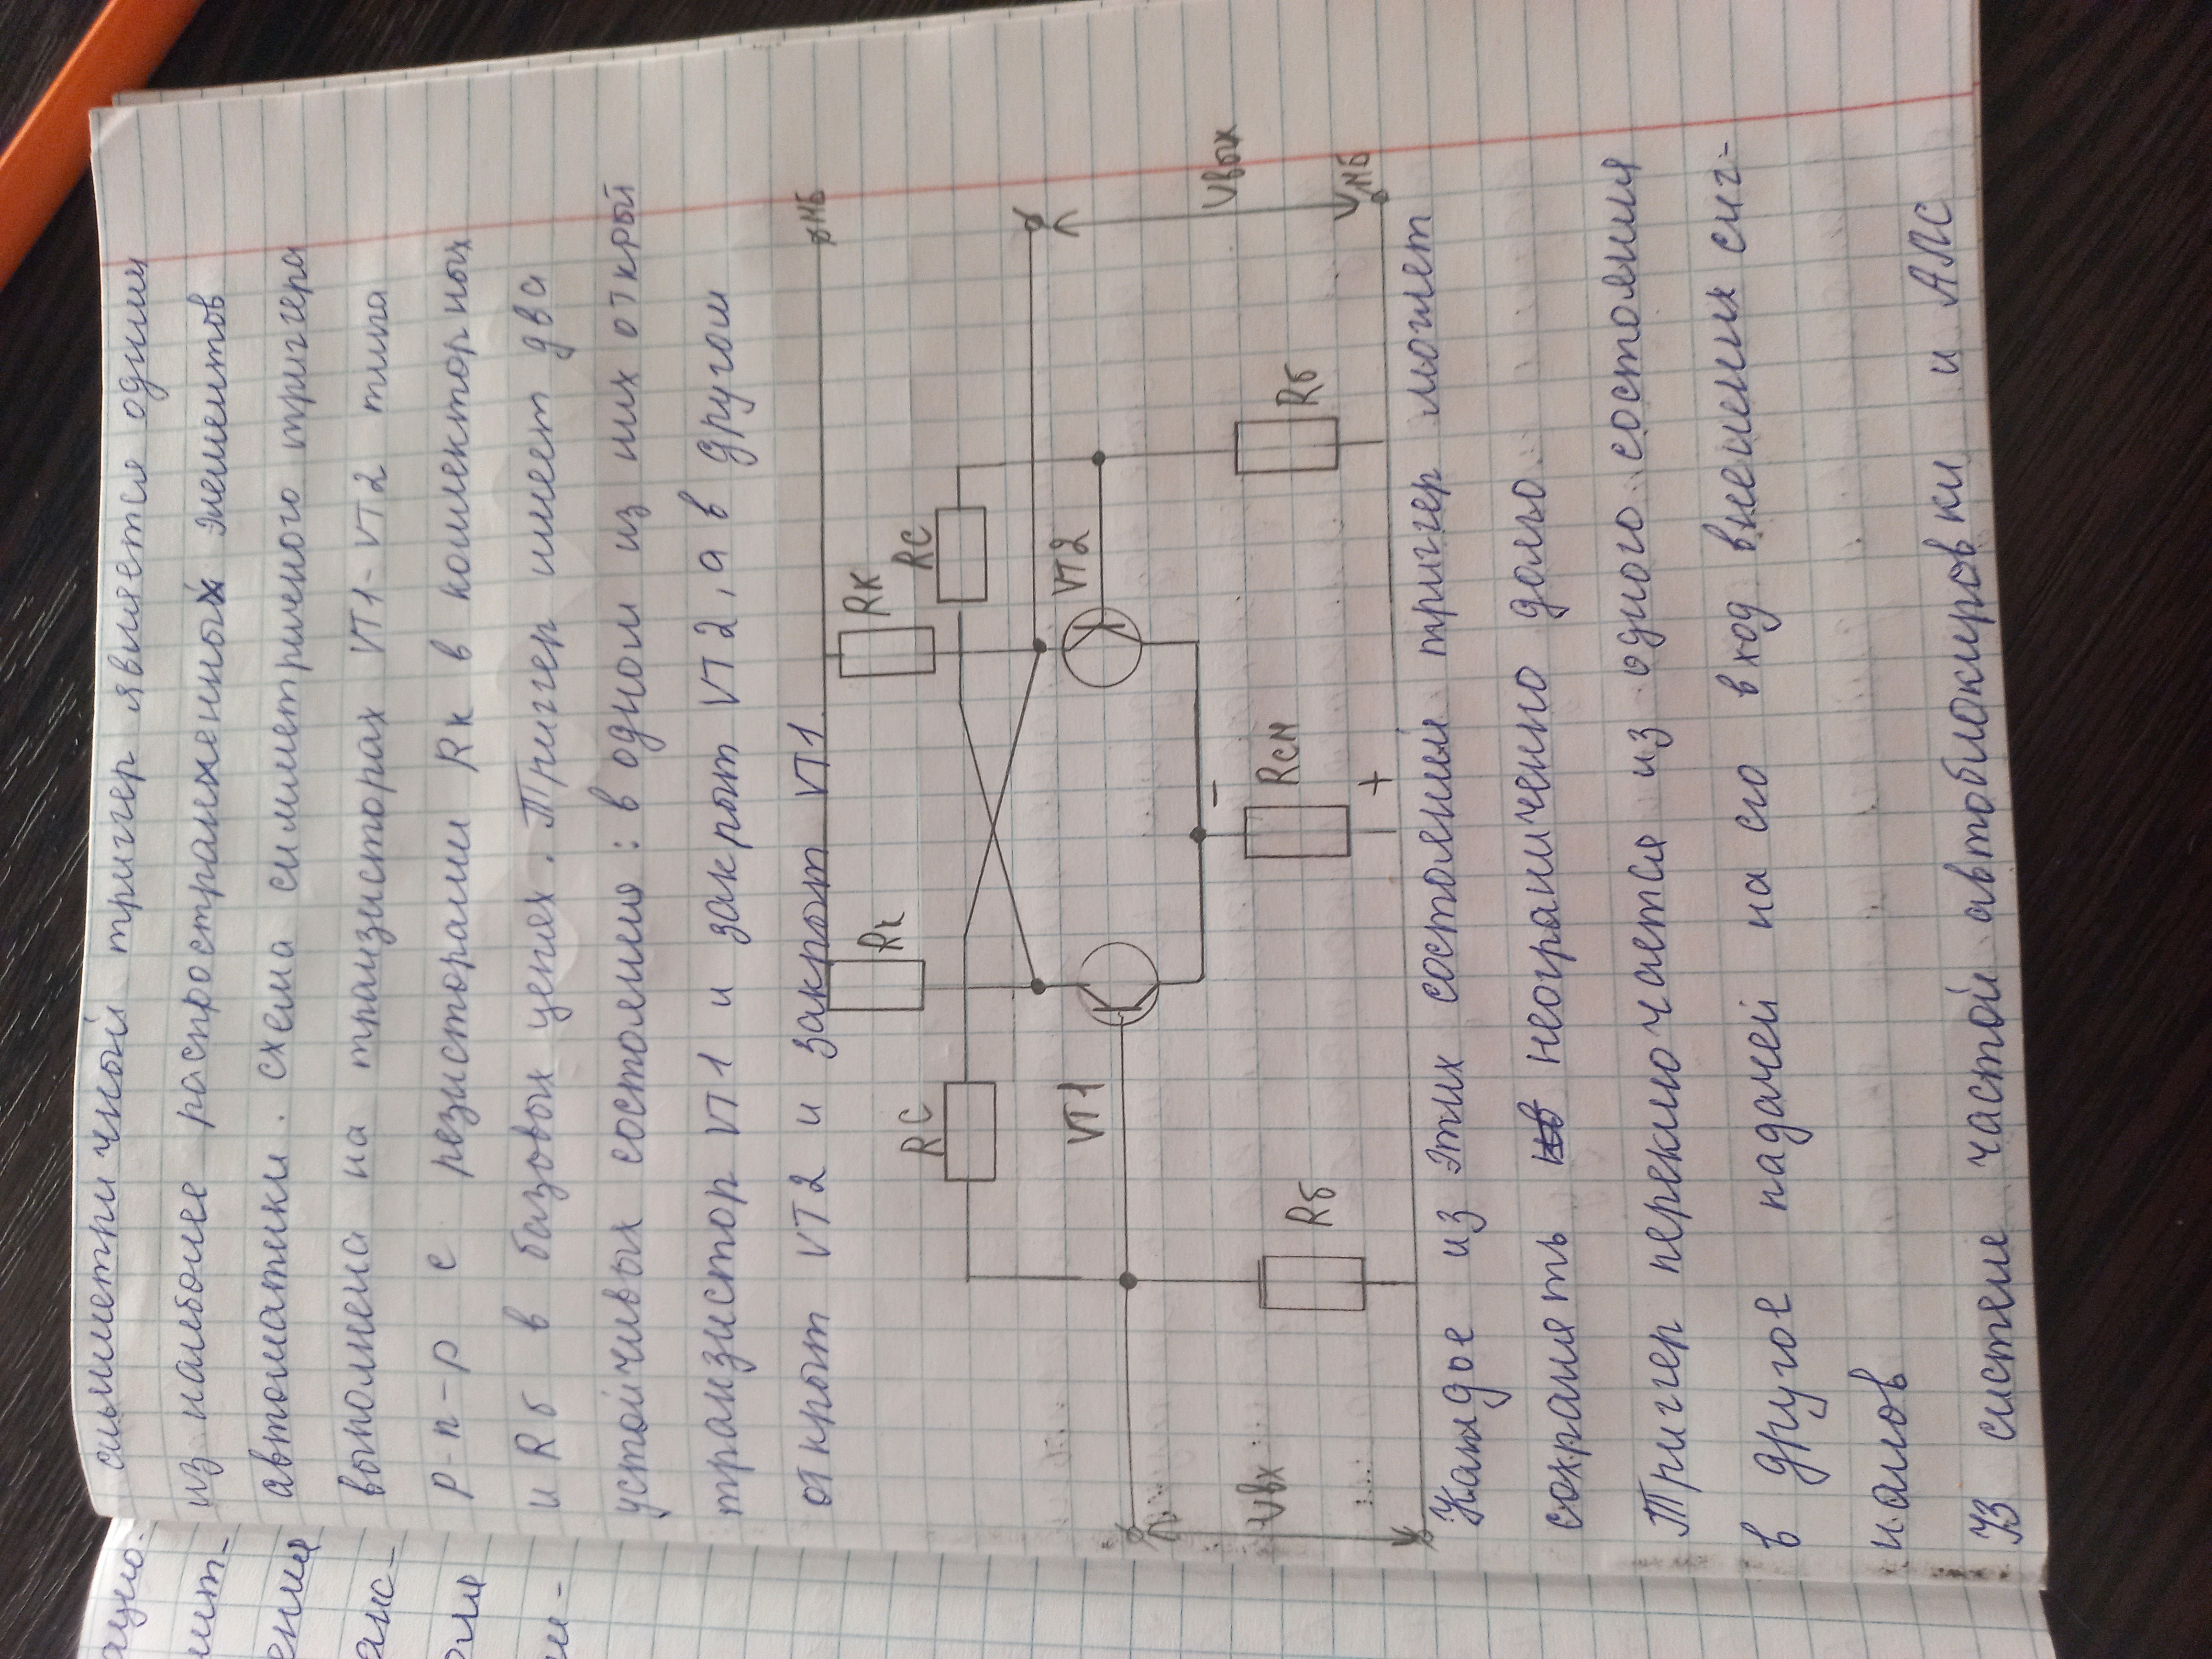 симметричный тригер является одним
из наиболее распространенных элементов
автоматики. схема симметричного триггера
выполнена на транзисторах VT1-VT2 типа
p-n-p с резисторами Rк в коллекторных
и Rб в базовых цепях. Триггер имеет два
устойчивых состояния: в одном из них открый
транзистор VT1 и закрыт VT2, а в другом
открыт VT2 и закрыт VT1
МБ
Rк
Rк
RC
RC
VT1
VT2
Uвых
Rб
Rсм
Rб
Uвх
МБ
-
+
Каждое из этих состояний тригер может
сохранять неограниченно долго.
Тригер переключается из одного состояния
в другое подачей на его вход внешних сиг-
налов
В системе частой автоблокировки и АЛС
ацио-
мит-
ения
анс-
оля
ы-